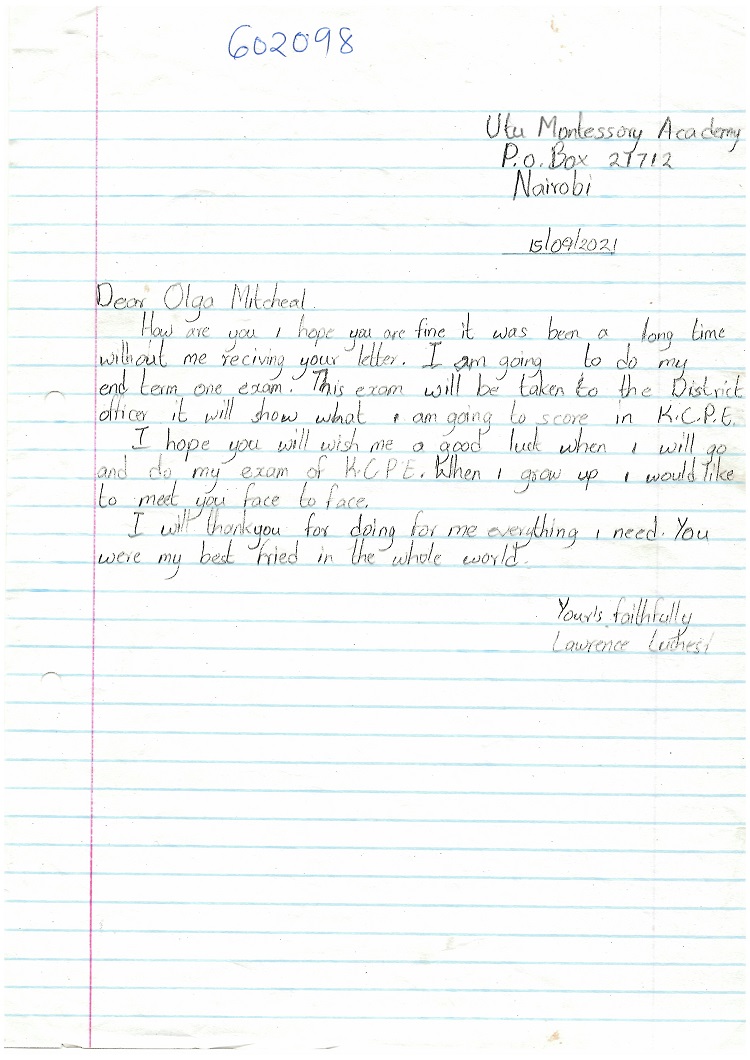 602098
Utu Montessory Academy
P.O.Box 27712
Nairobi
15/09/2021
Dear Olga Mitcheal.
How are you I hope you are fine it was been a long time
without me reciving your letter. I am going to do my
end term one exam. This exam will be taken to the District
officer it will show what I am going to score in K.C.P.E.
I hope you will wish me a good luck when I will go
and do my exam of K.C.P.E. When I grow up I would like
to meet you face to face.
I will thankyou for doing for me everything I need. You
were my best fried in the whole world.
Your's faithfully
Lawrence